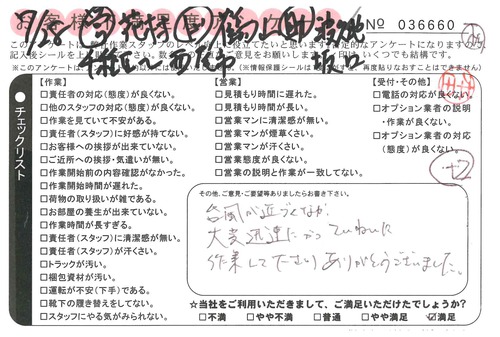 No 036660
【作業】
□責任者の対応(態度)が良くない。
□他のスタッフの対応(態度)が良くない。
□作業を見ていて不安がある。
□責任者(スタッフ)に好感が持てない。
□お客様への挨拶が出来ていない。
□ご近所への挨拶・気遣いが無い。
□作業開始前の内容確認がなかった。
□作業開始時間が遅れた。
□荷物の取り扱いが雑である。
□お部屋の養生が出来ていない。
□作業時間が長すぎる。
□責任者(スタッフ)に清潔感が無い。
□責任者(スタッフ)が汗くさい。
□トラックが汚い。
□梱包資材が汚い。
□運転が不安(下手)である。
□靴下の履き替えをしてない。
□スタッフにやる気がみられない。
チェックリスト
【営業】
□見積もり時間に遅れた。
□見積もり時間が長い。
□営業マンに清潔感が無い。
□営業マンが煙草くさい。
□営業マンが汗くさい。
□営業態度が良くない。
□営業の説明と作業が一致してない。
【受付・その他】
□電話の対応が良くない。
□オプション業者の説明
・作業が良くない。
□オプション業者の対応
(態度)が良くない。
その他、ご意見・ご要望等ありましたらお書き下さい。
台風が近づくなか
大変迅速にかつていねいに
作業して下さりありがとうございました。
☆当社をご利用いただきまして、ご満足いただけたでしょうか?
□不満 □やや不満 □普通 □やや満足 ☑満足